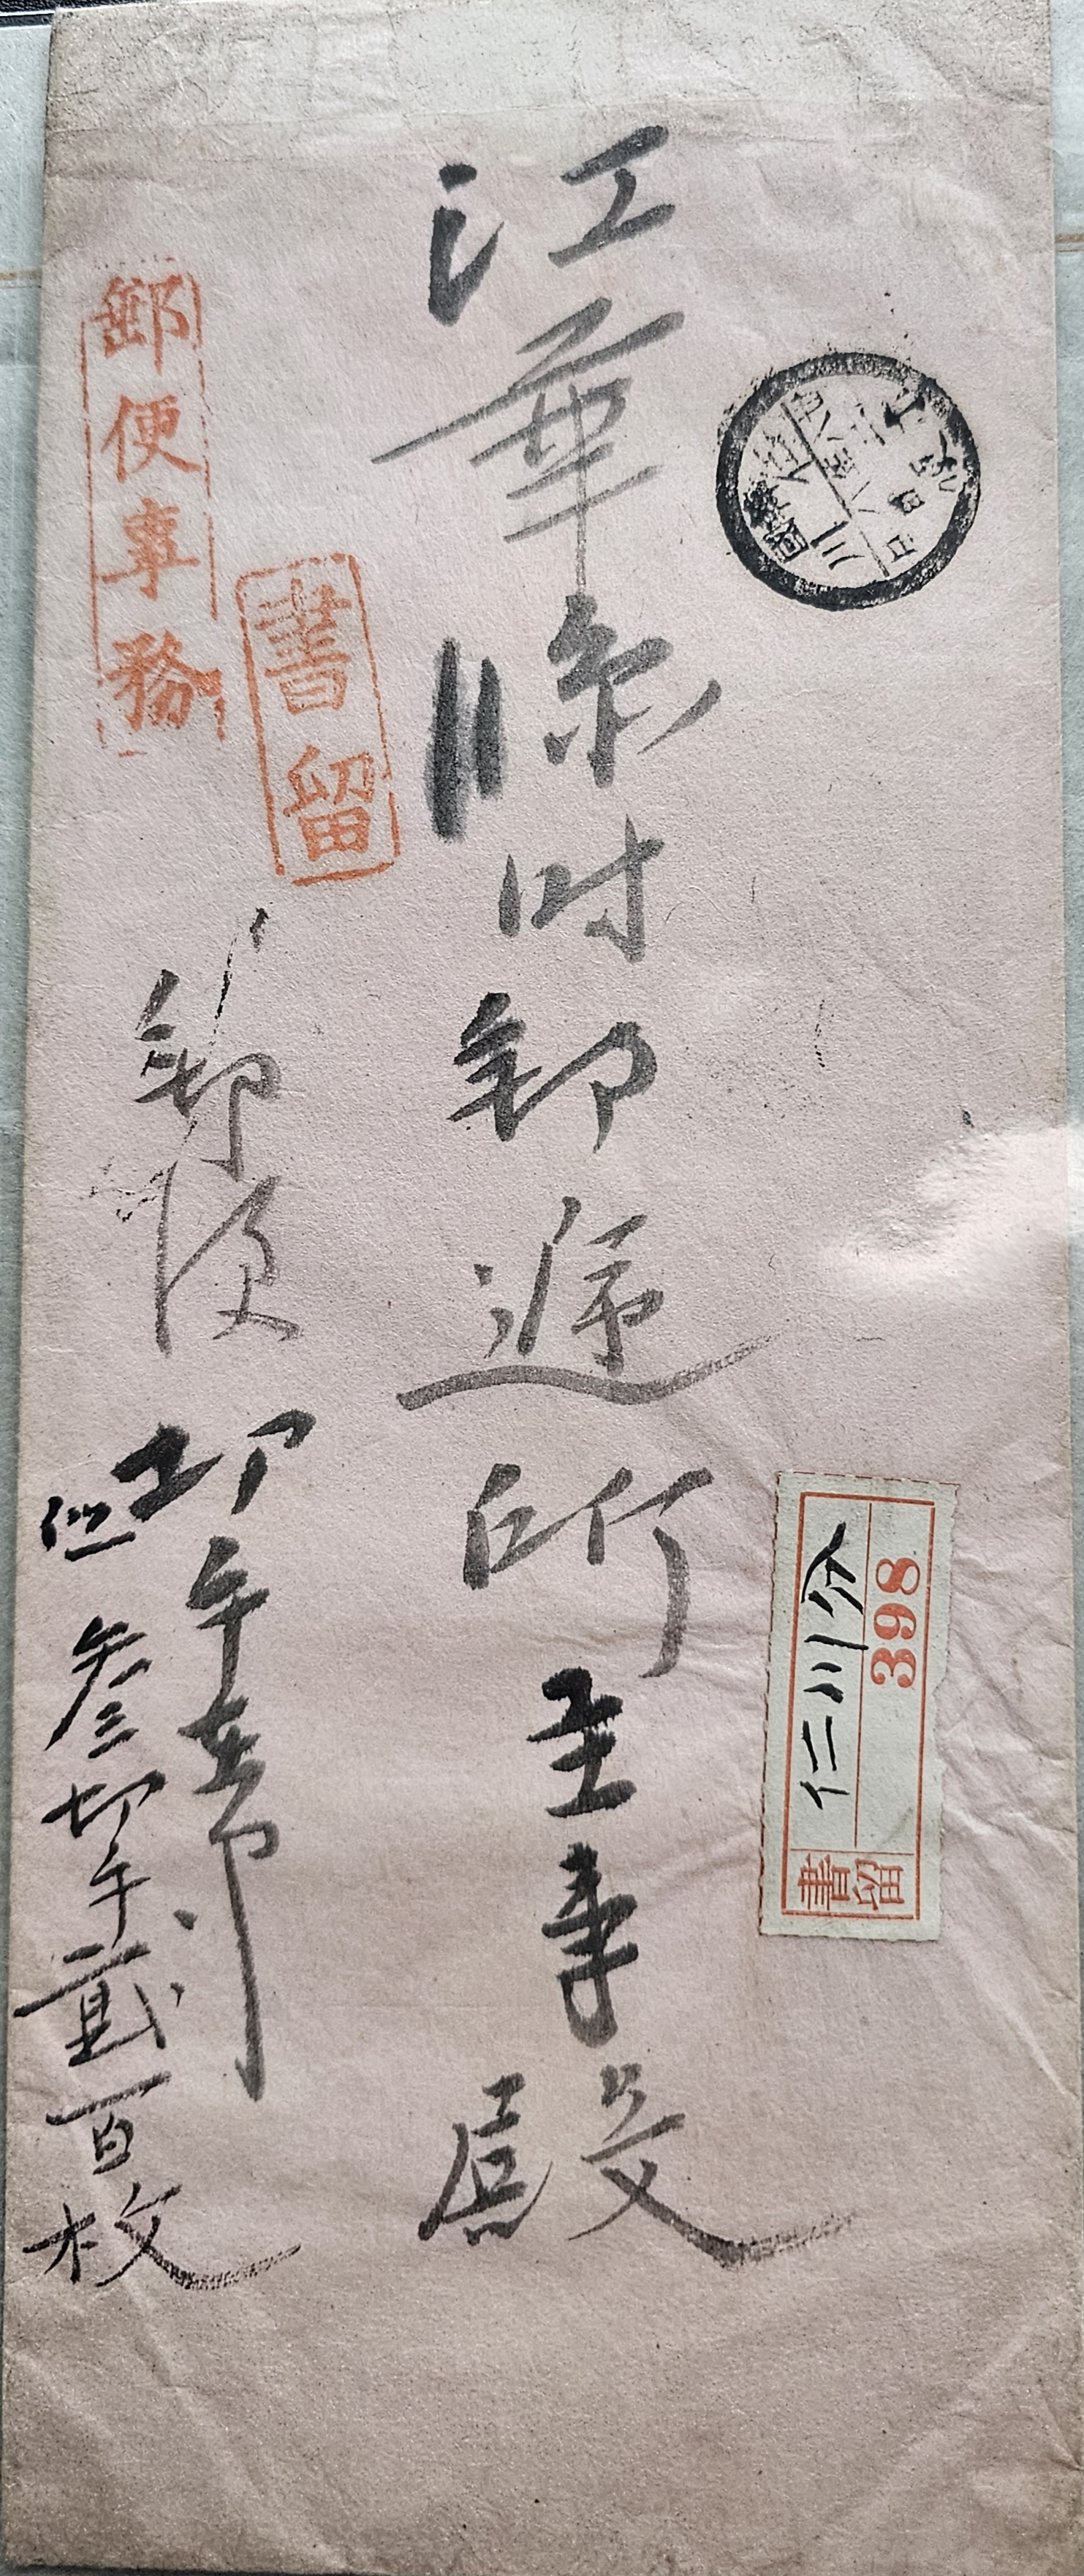 江華臨時郵遞所主事殿
398
仁川分
書留
郵便切手在中
但参切手貳百枚
郵便事務
書留